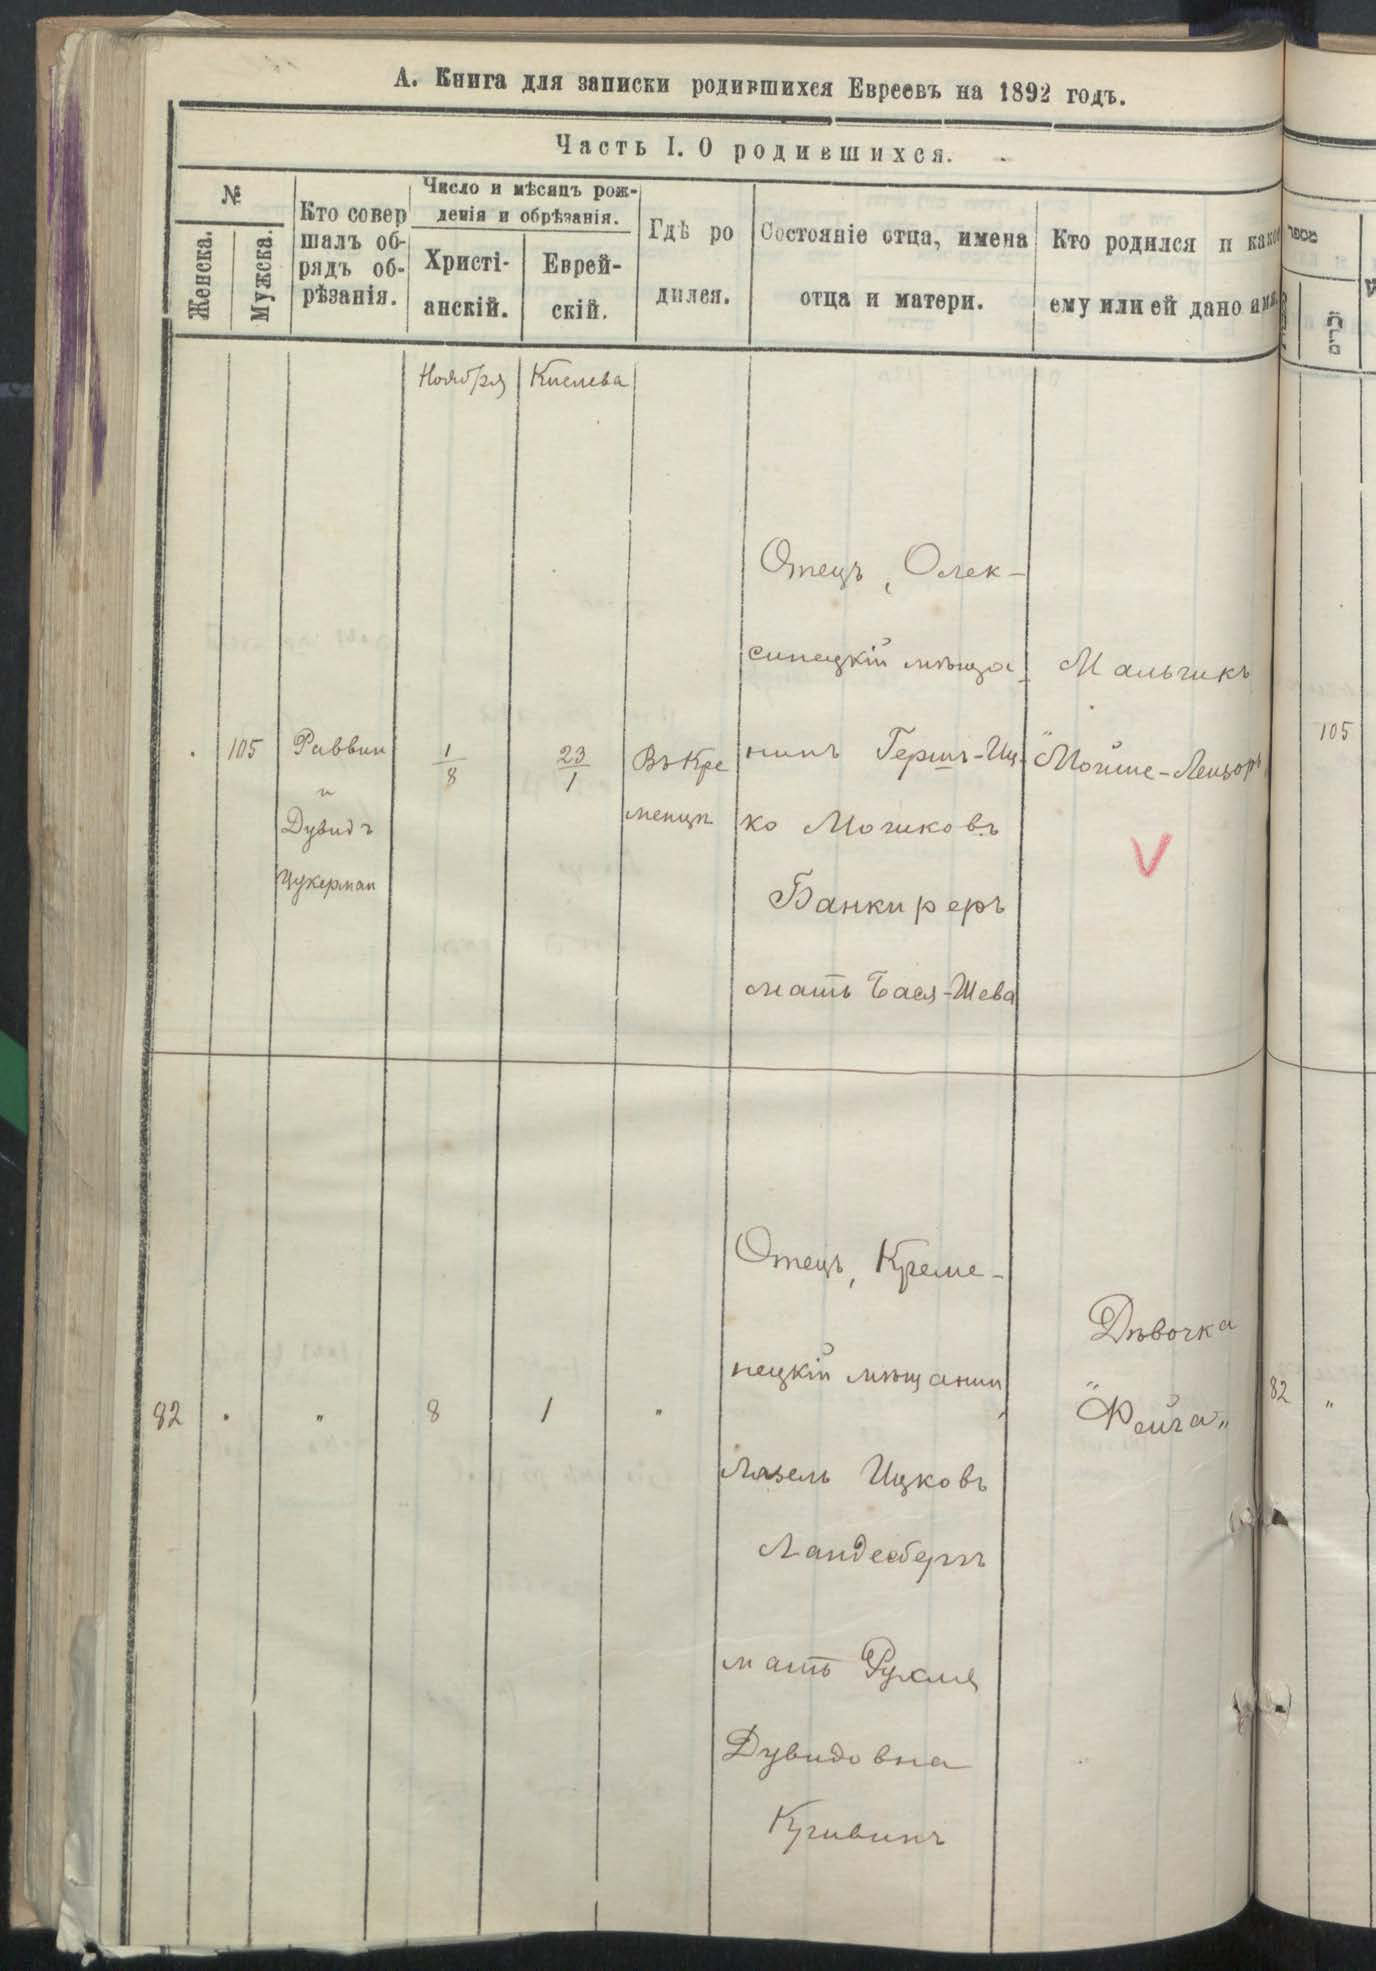 А. Книга для записки родившихся Евреевъ на 1892 годъ.
Часть I. О родившихся.
№
Женска.
Мужска.
Кто совер
шалъ об-
рядъ об-
рѣзанія.
Число и мѣсяцъ рож-
денія и обрѣзанія.
Христі-
анскій.
Еврей-
скій.
Гдѣ ро
дился.
Состояніе отца, имена
отца и матери.
Кто родился и како
ему или ей дано имя.
מספר
זכרים
Ноября
Кислева
105
Раввин
и
Дувидъ
Цукерман
1
8
23
1
Въ Кре
менцѣ
Отецъ, Олек-
синецкій мѣща-
нинъ Гершъ-Иц-
ко Мошковъ
Банкиреръ
мать Бася-Шева
Мальчикъ
"Мойше-Лейзоръ
V
105
82
"
8
1
"
Отецъ, Креме-
нецкій мѣщанин,
Лазель Ицковъ
Ландесбергъ
мать Рухля
Дувидовна
Кривинъ
Дѣвочка
"Фейга"
82
"